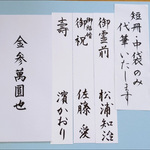 短冊・中袋のみ
代筆いたします
御霊前
松浦知治
御結婚
御祝
佐藤愛
壽
濱かおり
金参萬圓也